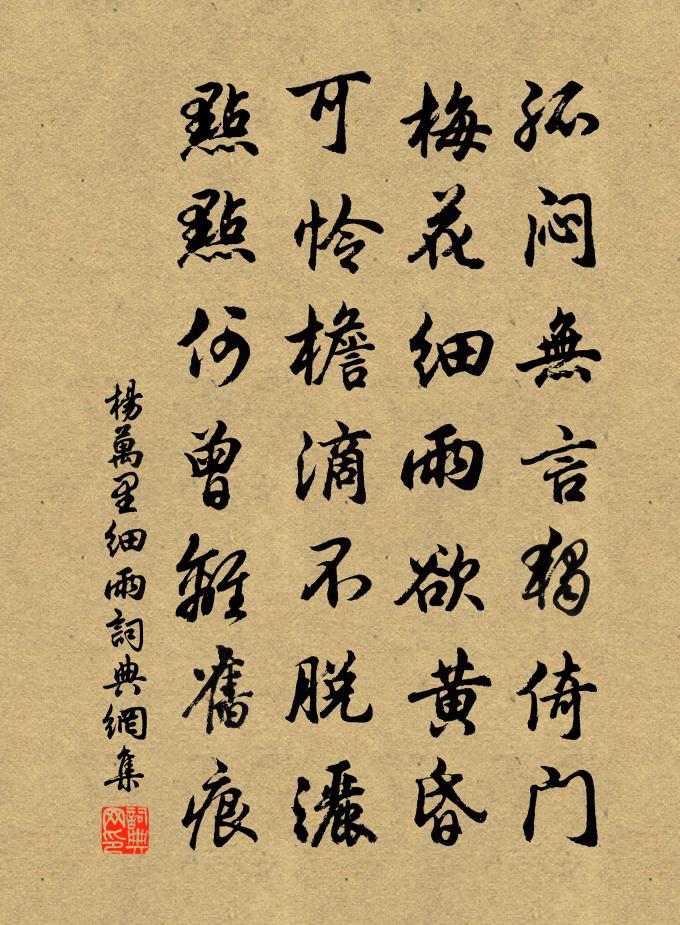 孤闷無言獨倚门
梅花細雨欲黄昏
可怜檐滴不脱灑
點點何曾離舊痕
楊萬里細雨詞典網集
詞典网印